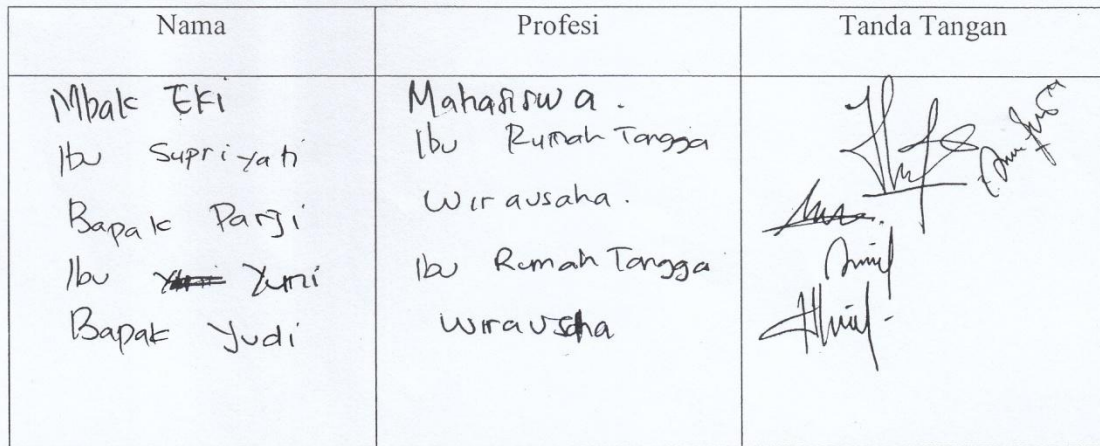 Nama Profesi Tanda Tangan
Mbak Eki Mahasiswa.
Ibu Supriyati Ibu Rumah Tangga
Bapak Parji Wirausaha.
Ibu Yuni Ibu Rumah Tangga
Bapak Yudi Wirausaha